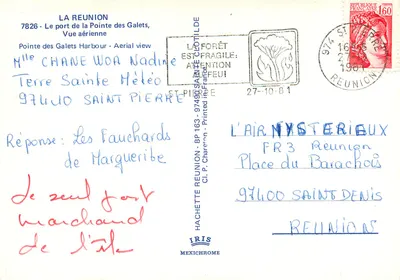 LA REUNION
7826 - Le port de la Pointe des Galets,
Vue aérienne
Pointe des Galets Harbour - Aerial view
Mlle CHANE WOA Nadine
Terre Sainte Météo
97410 SAINT PIERRE
Réponse: Les Fauchards
de Margueribe
Le seul port
marchand
de l'île
HACHETTE REUNION - BP 163 - 97493 SAINTE CLOTILDE
Cl. P. Charenon - Printed in France
IRIS
MEXICHROME
LA FORÊT
EST FRAGILE,
ATTENTION
AU FEU!
ST-PIERRE 27-10-81
974 ST PIERRE
1981
REUNION
1,60
L'AIR MYSTERIEUX
FR3 Réunion
Place du Barachois
97400 SAINT DENIS
REUNION